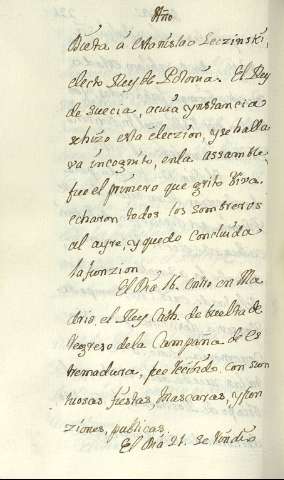 Año
Dieta á Estanislao Leczinski,
electo Rey de Polonia. El Rey
de Suecia, acuia ynstancia
se hizo esta eleczion, y se halla
va incognito, en la assamblea
fue el primero que grito Viva.
echaron todos los sombreros
al ayre, y quedo concluida
la funzion
El Dia 16. entro en Ma
drid, el Rey Cath. de buelta de
regreso de la Campaña de Es
tremadura, fue recibido, con sun
tuosas fiestas, mascaras, y fun
ziones, publicas.
El Dia 21. se rindio